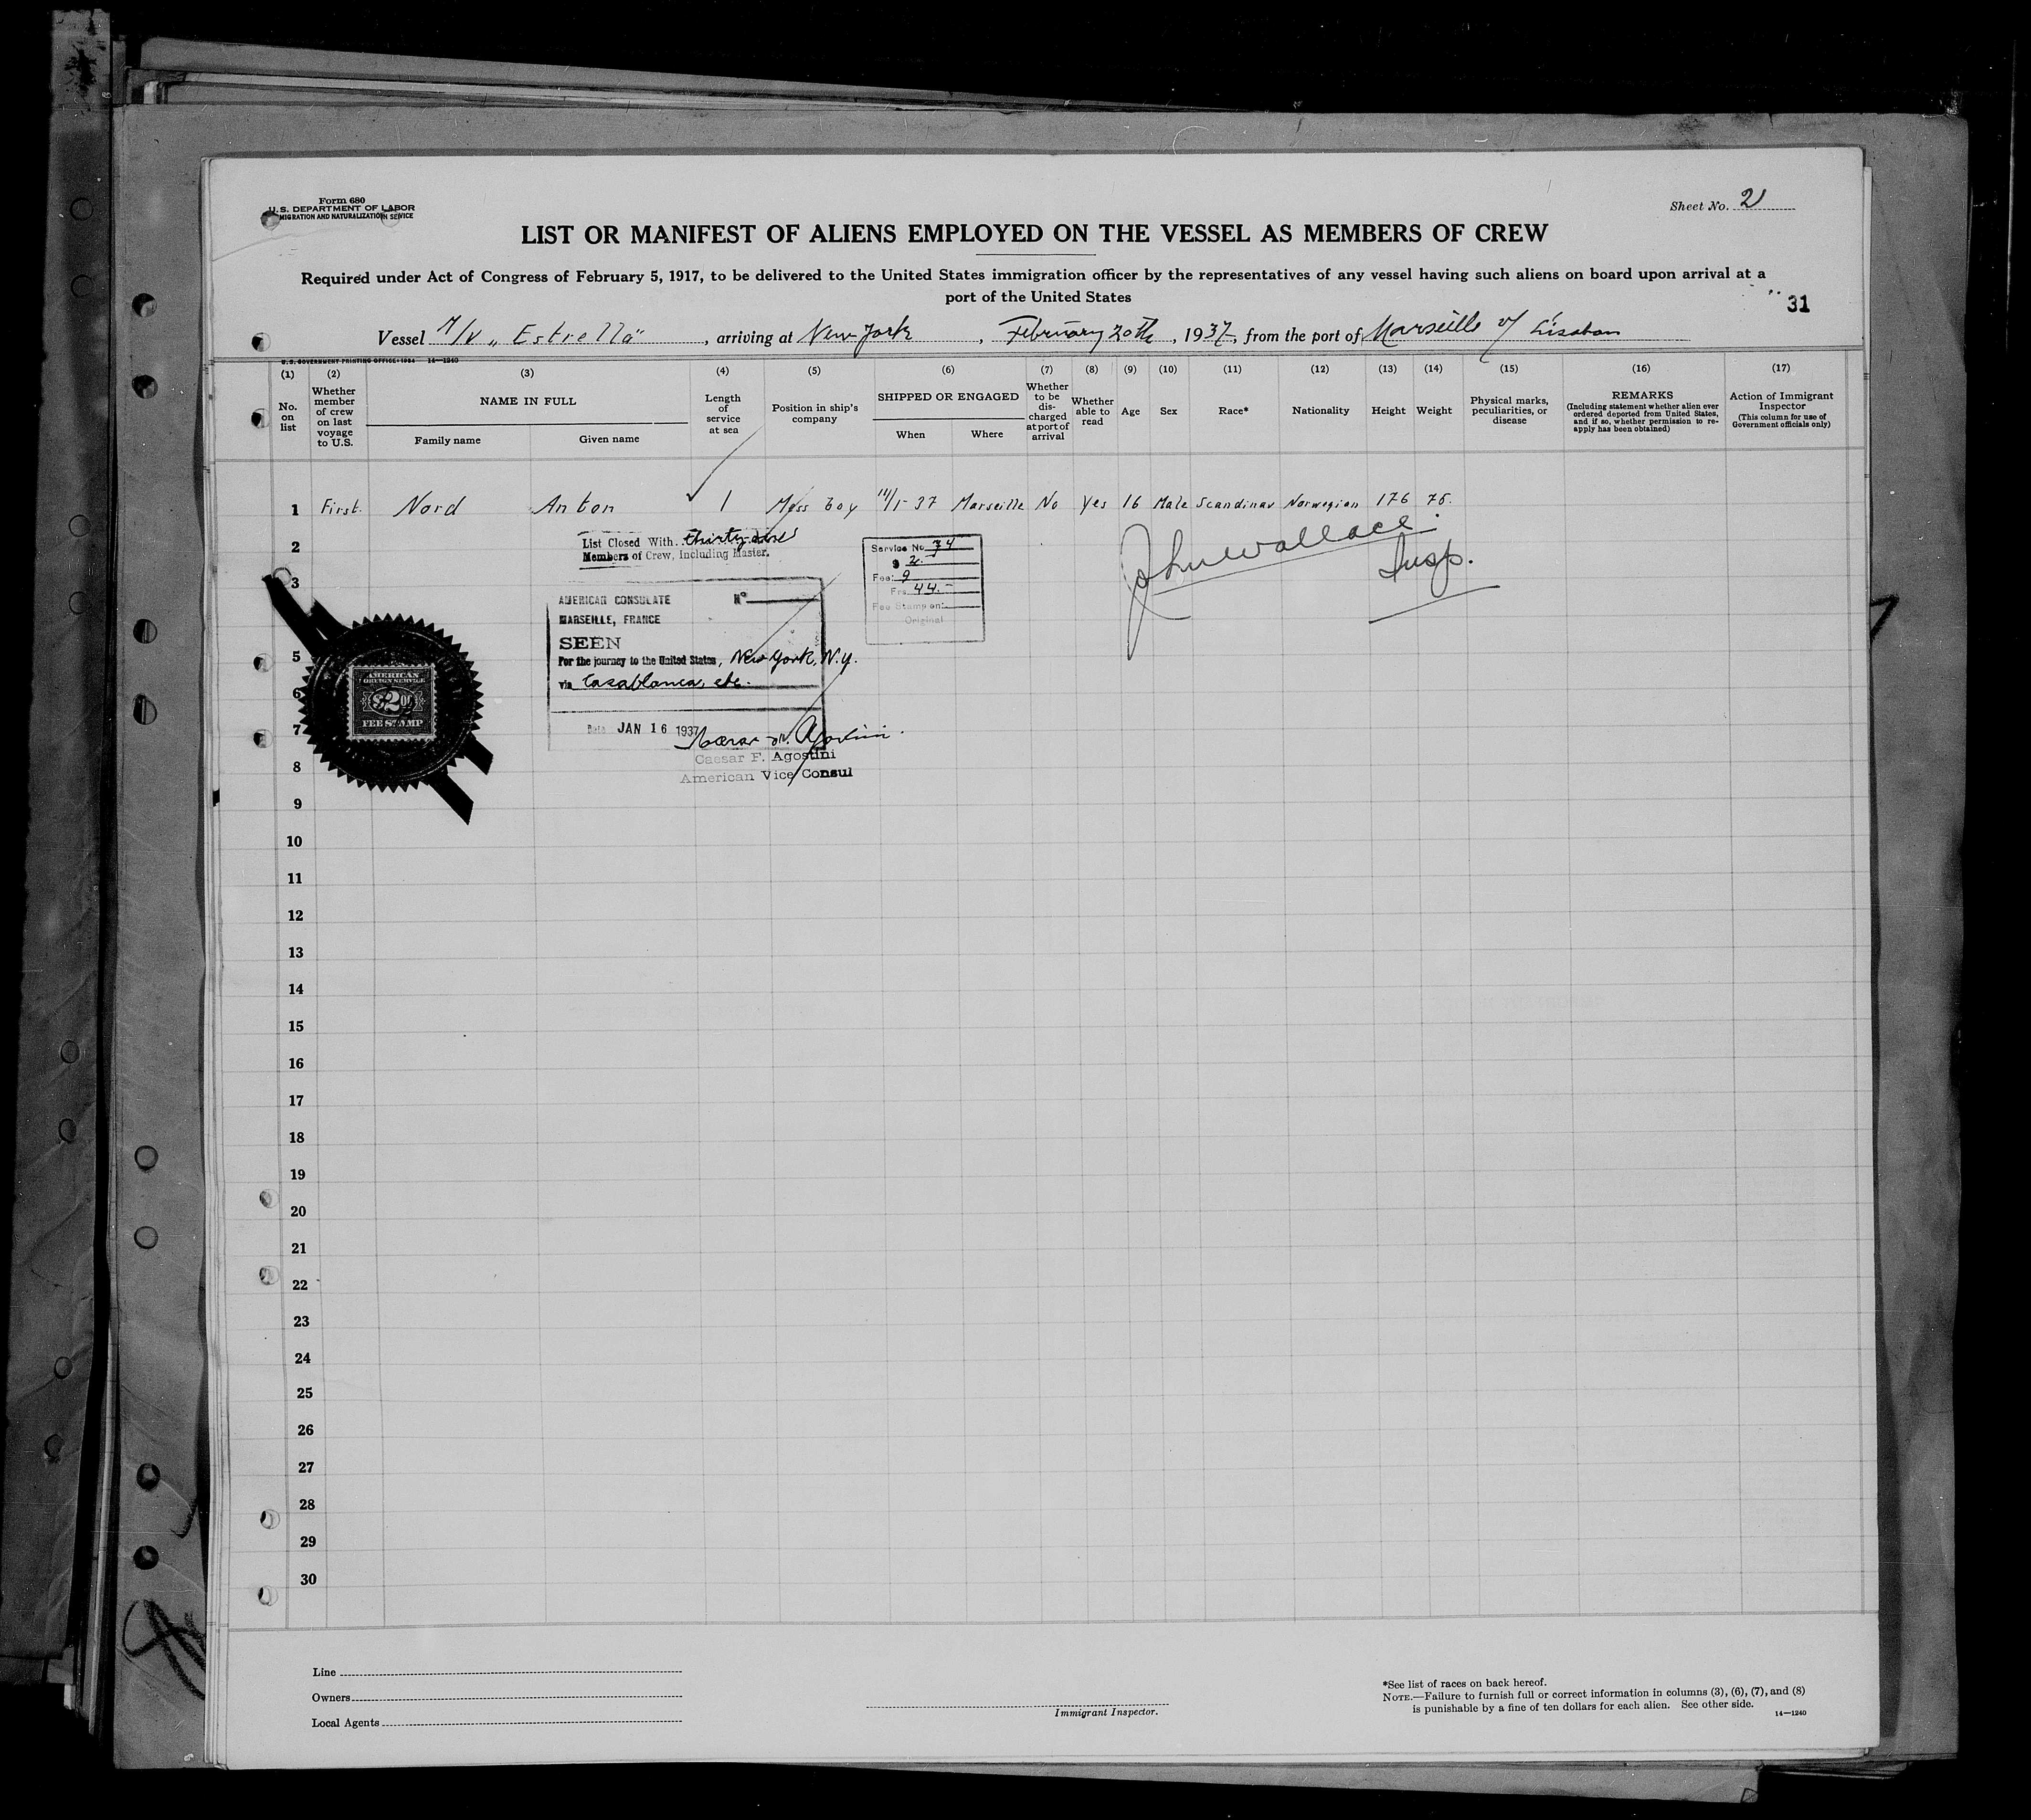 Form 680
U.S. DEPARTMENT OF LABOR
MIGRATION AND NATURALIZATION SERVICE
Sheet No. 2
LIST OR MANIFEST OF ALIENS EMPLOYED ON THE VESSEL AS MEMBERS OF CREW
Required under Act of Congress of February 5, 1917, to be delivered to the United States immigration officer by the representatives of any vessel having such aliens on board upon arrival at a
port of the United States
31
Vessel M/V „Estrella", arriving at New York, February 20th, 1937, from the port of Marseille Lisabon
U.S. GOVERNMENT PRINTING OFFICE: 1934 14—1240
(1) (2) (3) (4) (5) (6) (7) (8) (9) (10) (11) (12) (13) (14) (15) (16) (17)
No. on list
Whether member of crew on last voyage to U.S.
NAME IN FULL
Family name
Given name
Length of service at sea
Position in ship's company
SHIPPED OR ENGAGED
When
Where
Whether to be discharged at port of arrival
Whether able to read
Age
Sex
Race*
Nationality
Height
Weight
Physical marks, peculiarities, or disease
REMARKS
(Including statement whether alien ever ordered deported from United States, and if so, whether permission to re-apply has been obtained)
Action of Immigrant Inspector
(This column for use of Government officials only)
1 First Nord Anton 1 Mess boy 14/1-37 Marseille No Yes 16 Male Scandinav Norwegian 176 75.
2
List Closed With thirty
Members of Crew, Including Master.
Service No. 74
$ 2
Fee: 9
Frs. 44.-
Fee Stamp on:
Original
John Wallace
Insp.
3
AMERICAN CONSULATE N°
MARSEILLE, FRANCE
SEEN
For the journey to the United States, New York, N.Y.
via Casablanca, etc.
Date JAN 16 1937
Caesar F. Agostini
American Vice Consul
AMERICAN
FOREIGN SERVICE
$2.00
FEE STAMP
5
6
7
8
9
10
11
12
13
14
15
16
17
18
19
20
21
22
23
24
25
26
27
28
29
30
Line
Owners
Local Agents
Immigrant Inspector.
*See list of races on back hereof.
NOTE.—Failure to furnish full or correct information in columns (3), (6), (7), and (8)
is punishable by a fine of ten dollars for each alien. See other side.
14—1240